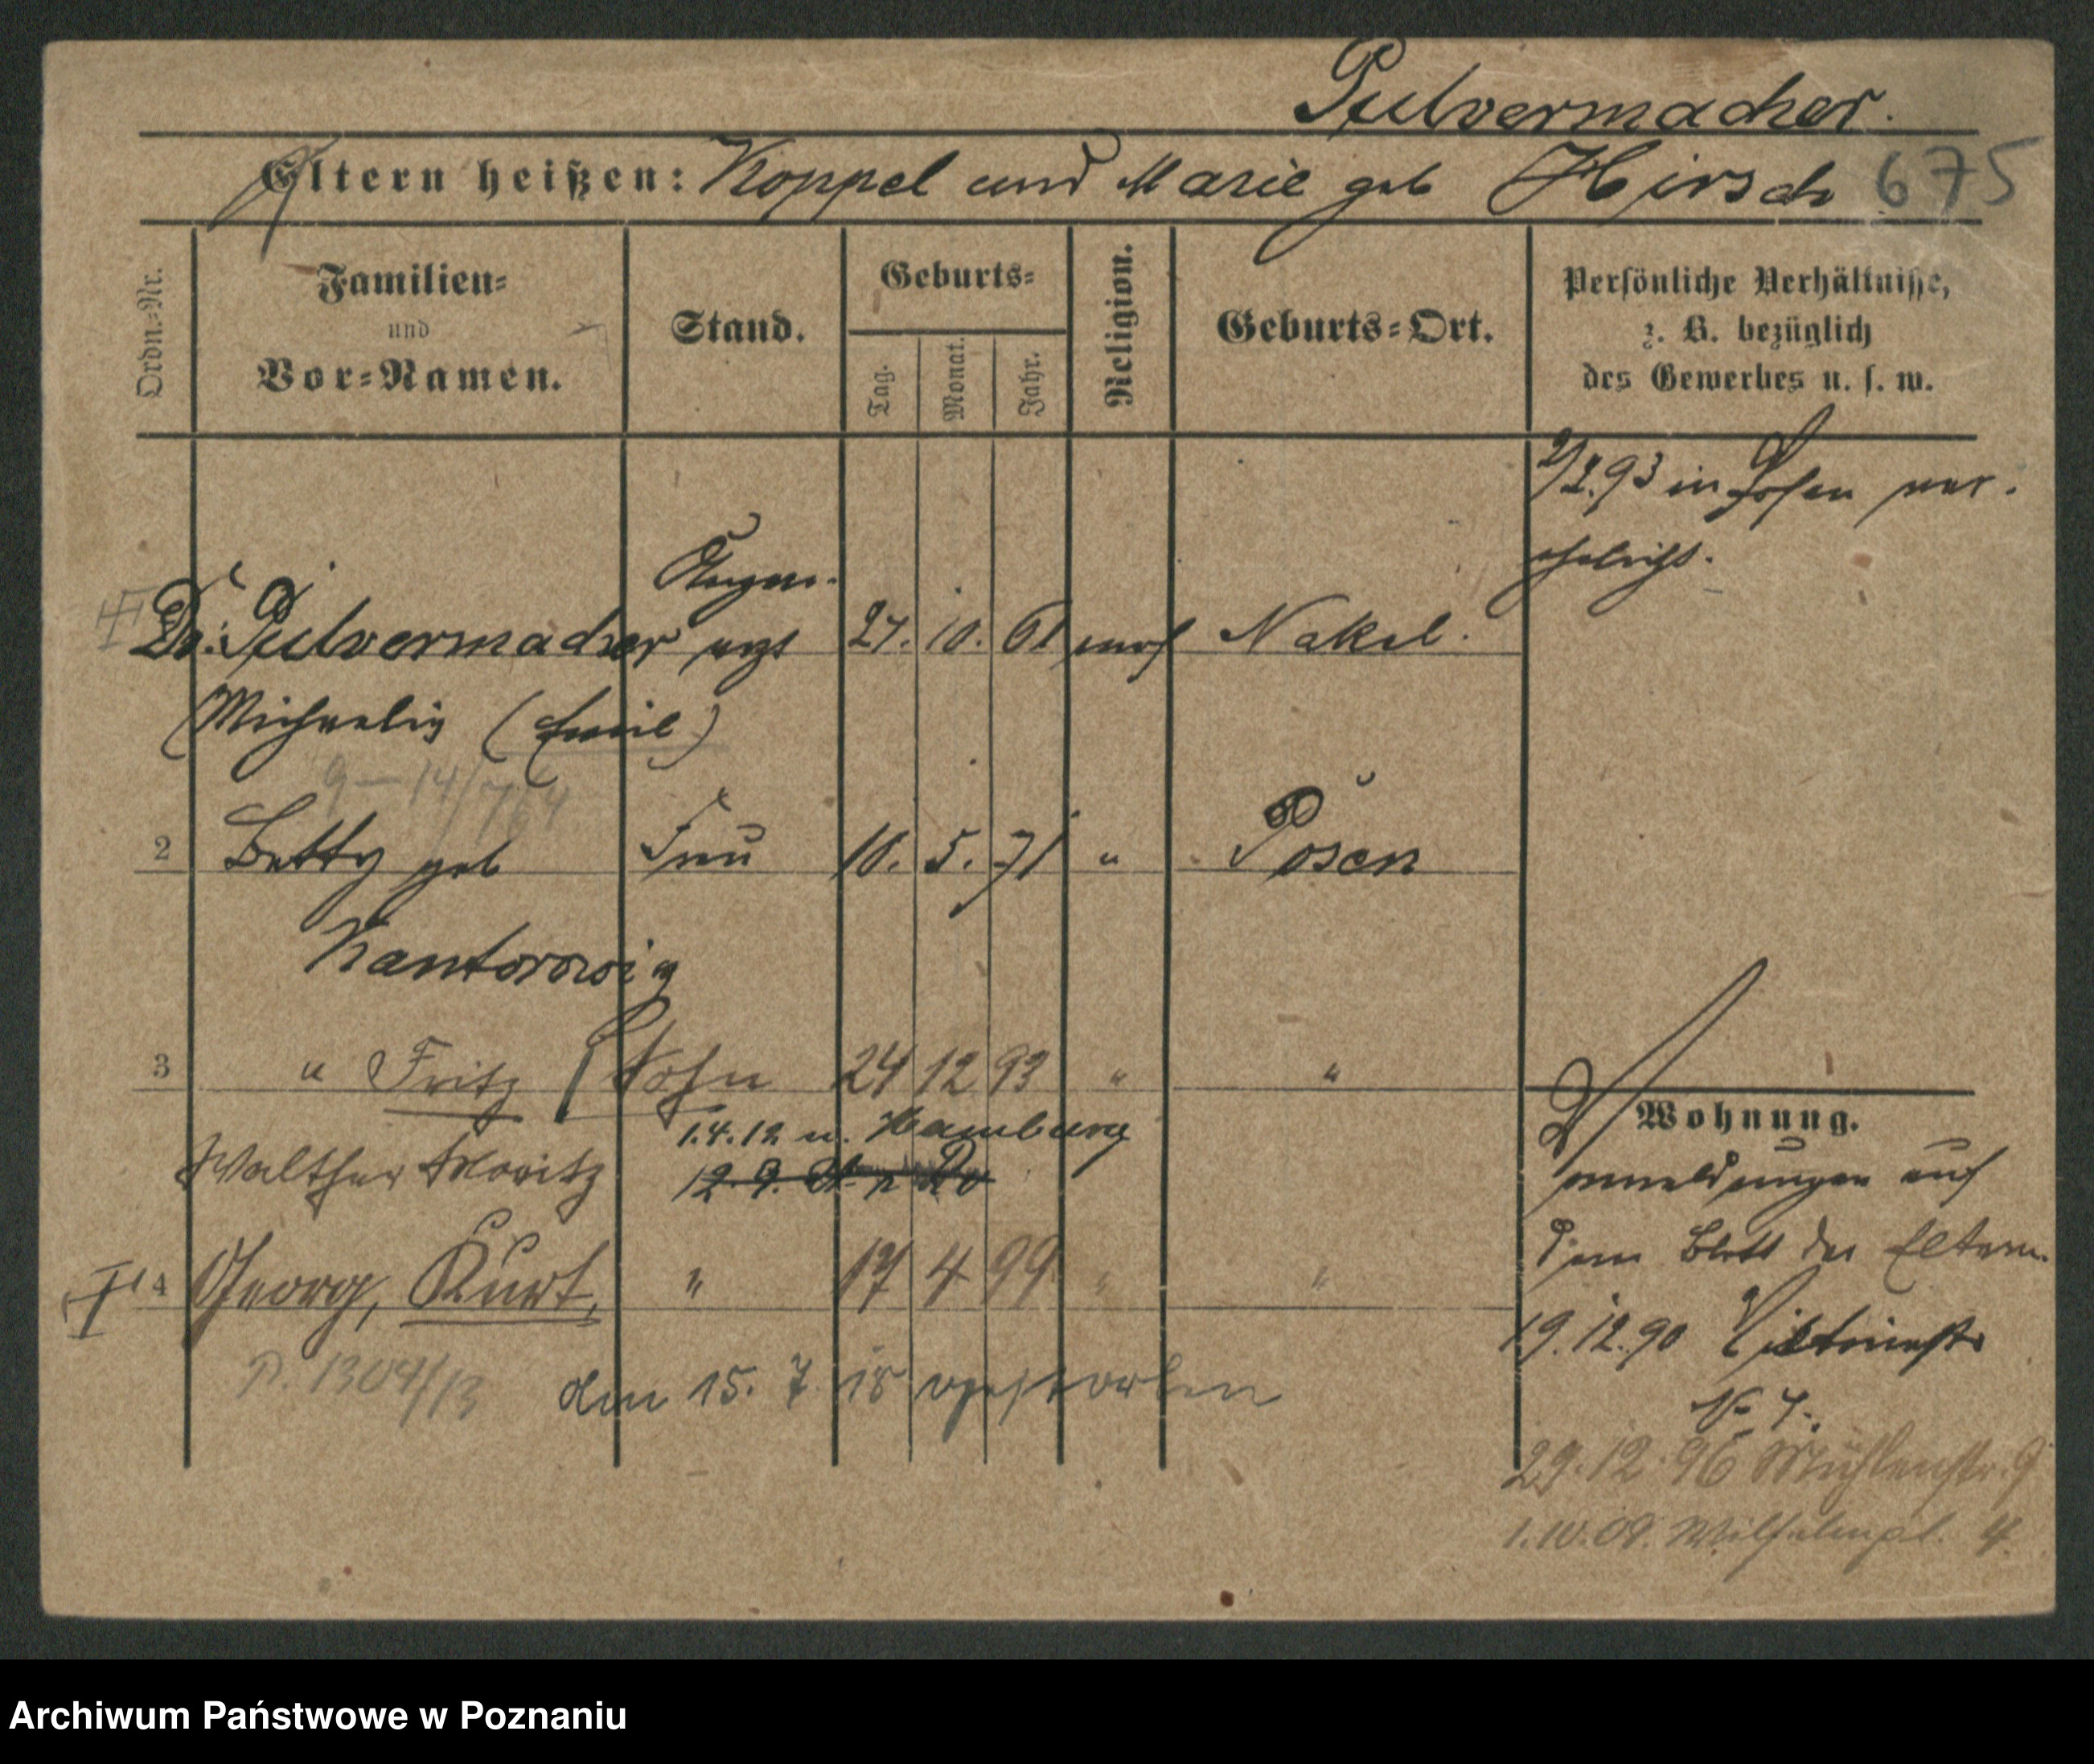 Pulvermacher.
Eltern heißen: Koppel und Marie geb Hirsch 675
Ordn.-Nr.
Familien-
und
Vor-Namen.
Stand.
Geburts-
Tag.
Monat.
Jahr.
Religion.
Geburts-Ort.
Persönliche Verhältnisse,
z. B. bezüglich
des Gewerbes u. s. w.
93 in Posen ver-
ehelicht.
Augen-
Dr. Pulvermacher arzt 27. 10. 61 mos Nakel.
Michaelis (Emil)
9-14/764
2 Betty geb Frau 10. 5. 71 " Posen
Kantorowig
3 " Fritz Sohn 24 12 93 " "
1.4.12 n. Hamburg
Walther Moritz
4 Georg, Kurt, " 17 4 99 " "
P. 1309/13 den 15. 7. 18 verstorben
Wohnung.
anmeldungen auf
dem Blatt der Eltern.
19.12.90 Viktoriastr
No 4.
29.12.96 Mühlenstr. 9
1.10.09. Wilhelmpl. 4.
Archiwum Państwowe w Poznaniu